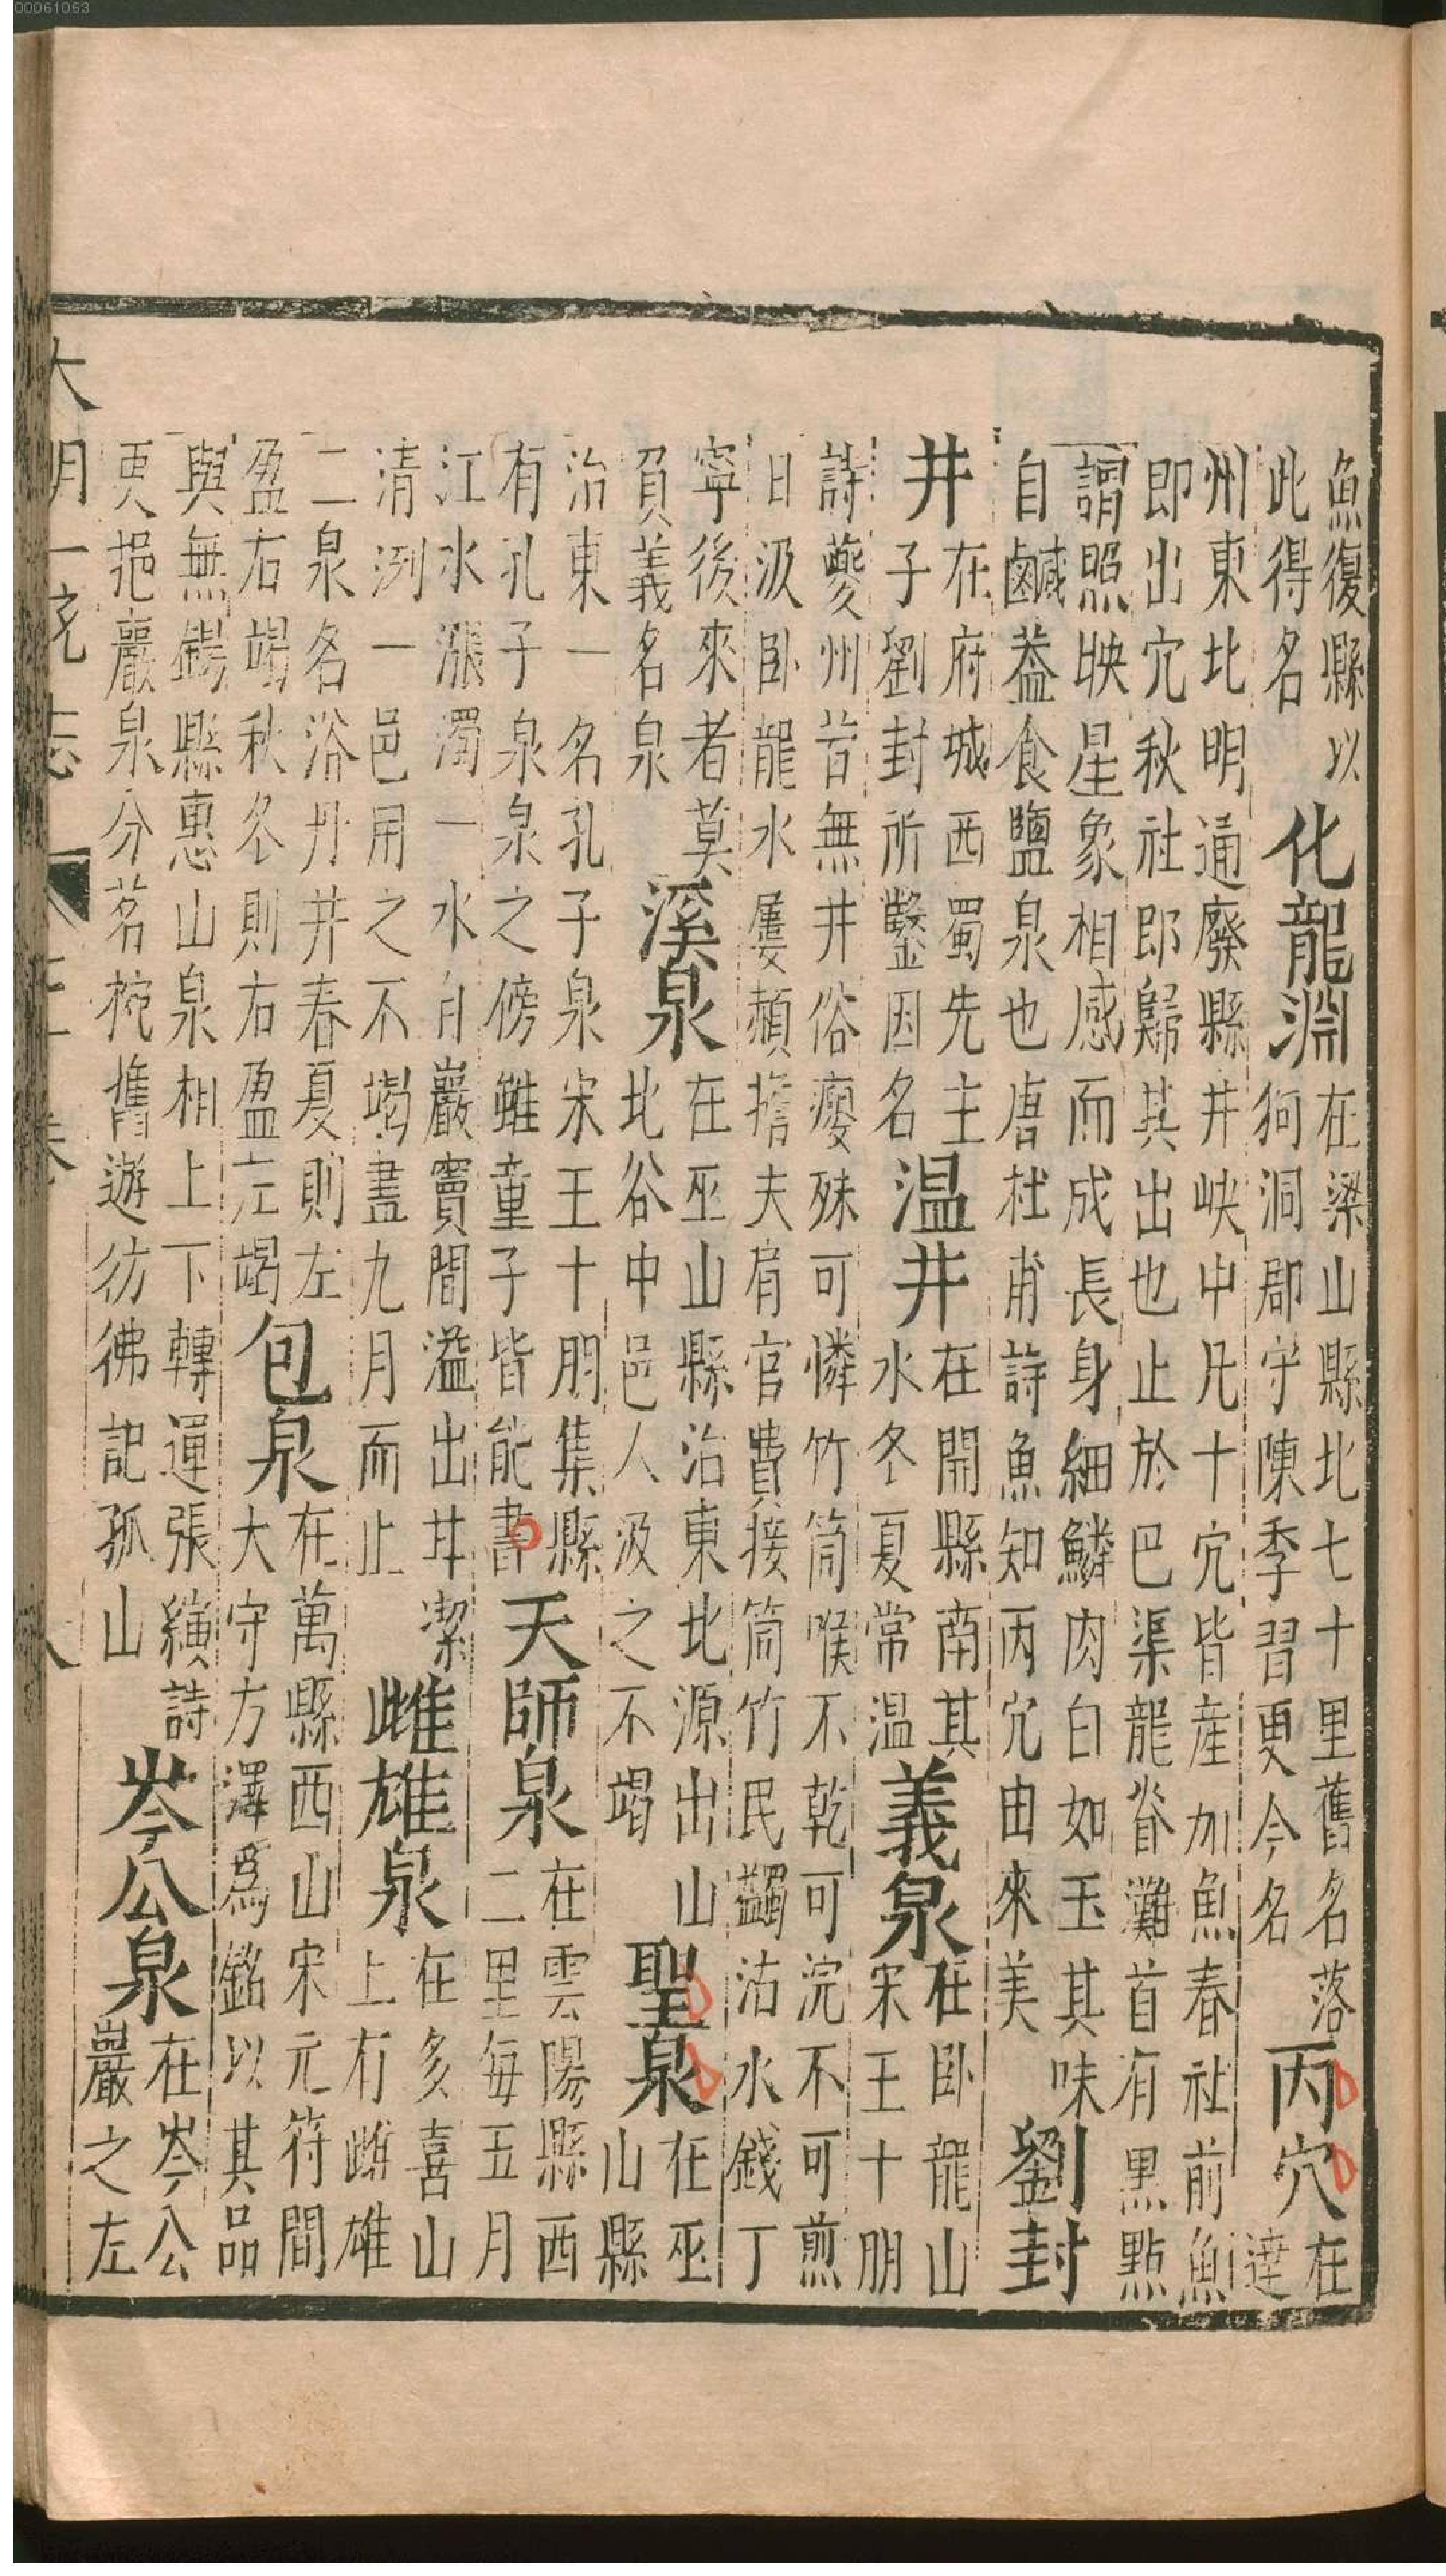 魚復縣以
此得名
化龍淵
在梁山縣北七十里舊名落
狗洞郡守陳季習更今名
丙穴
在
達
州東北明通廢縣井峽中凡十穴皆産加魚春社前魚
即出穴秋社即歸其出也止於巴渠龍脊灘首有黒點
謂照映星象相感而成長身細鱗肉白如玉其味
自鹹葢食鹽泉也唐杜甫詩魚知丙穴由來美
劉封
井
在府城西蜀先主
子劉封所鑿因名
温井
在開縣南其
水冬夏常温
義泉
在卧龍山
宋王十朋
詩夔州昔無井俗癭殊可憐竹筒喉不乾可浣不可煎
日汲卧龍水屢頳擔夫肩官費接筒竹民蠲沽水錢丁
寧後來者莫
負義名泉
溪泉
在巫山縣治東北源出山
北谷中邑人汲之不竭
聖泉
在巫
山縣
治東一名孔子泉宋王十朋集縣
有孔子泉泉之傍雖童子皆能書
天師泉
在雲陽縣西
二里每五月
江水漲濁一水自巖竇間溢出甘潔
清冽一邑用之不竭盡九月而止
雌雄泉
在多喜山
上有雌雄
二泉名浴丹井春夏則左
盈右竭秋冬則右盈左竭
包泉
在萬縣西山宋元符間
大守方澤爲銘以其品
與無錫縣惠山泉相上下轉運張縯詩
更挹巖泉分茗椀舊遊彷彿記孤山
岑公泉
在岑公
巖之左
大明一統志
00061063